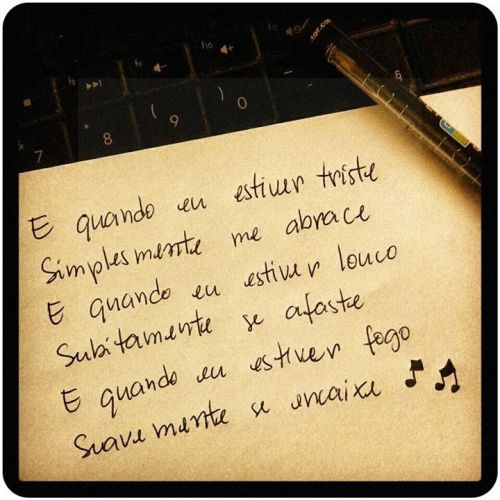 f10
f11
f12
7
8
9
0
*
(
)
E quando eu estiver triste
Simplesmente me abrace
E quando eu estiver louco
Subitamente se afaste
E quando eu estiver fogo
Suavemente se encaixe